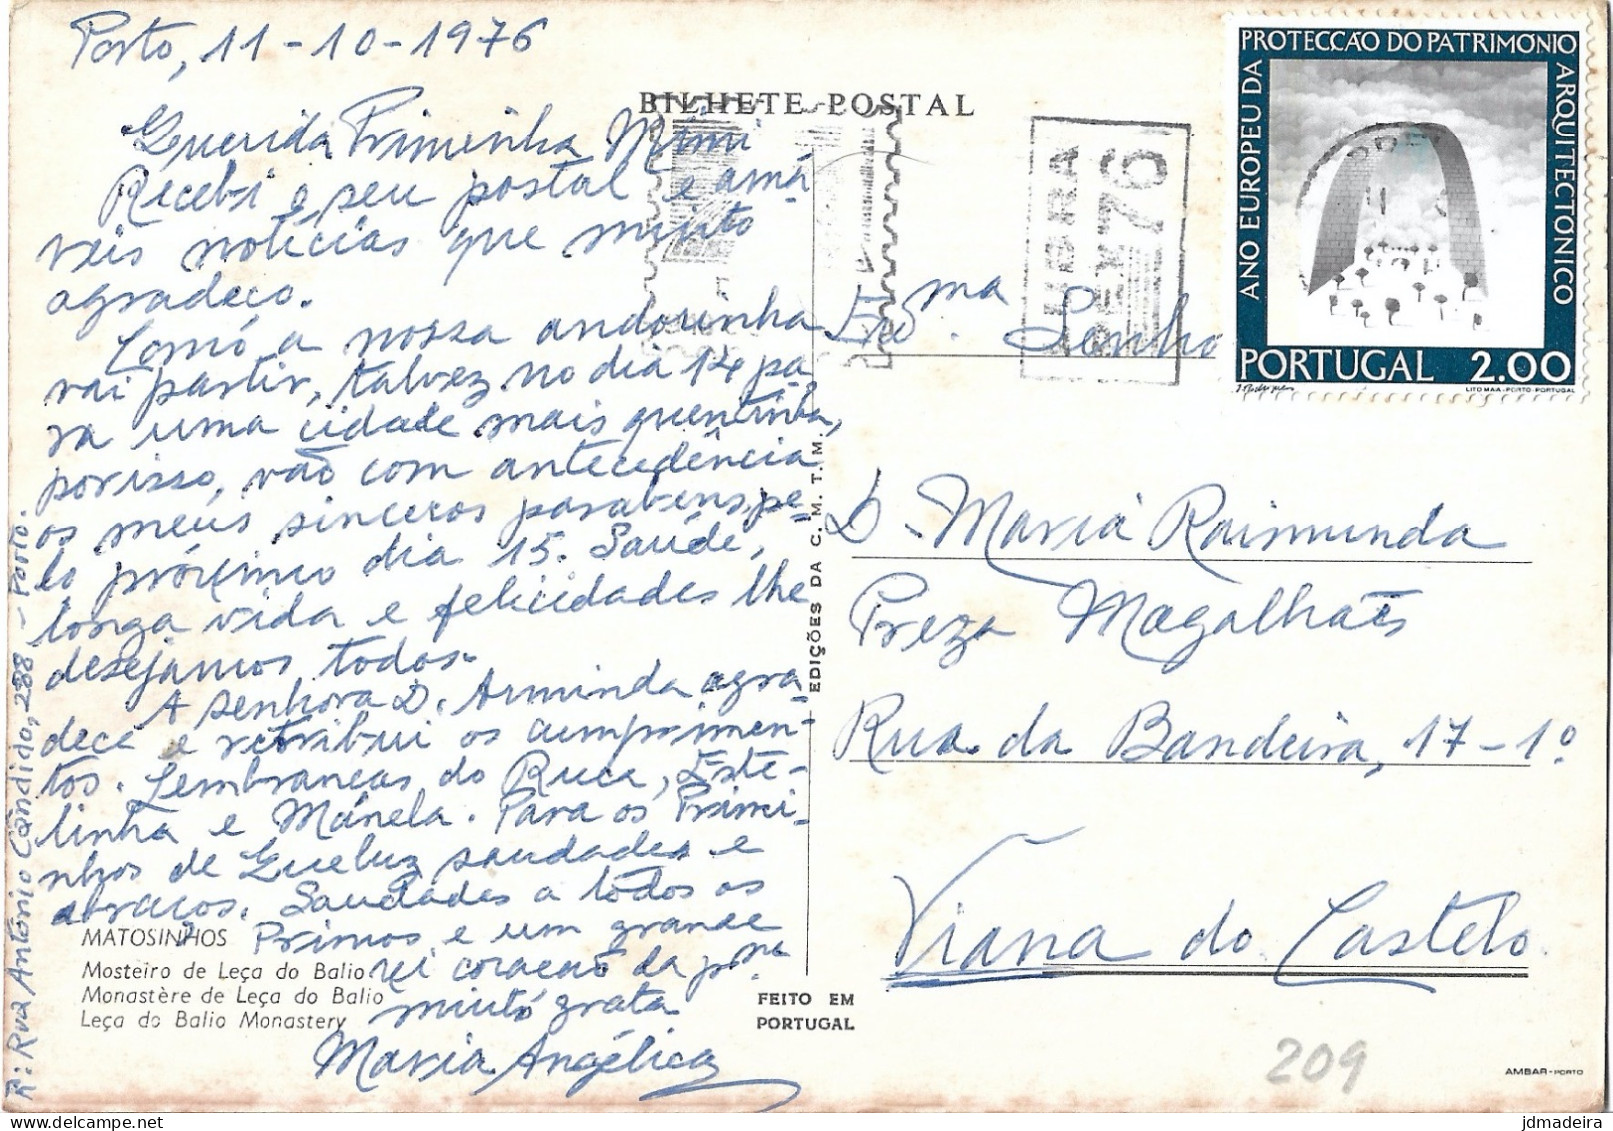 Porto, 11-10-1976
BILHETE POSTAL
Querida Priminha Mimi
Recebi o seu postal e amá-
veis notícias que muito
agradeço.
Como a nossa andorinha
vai partir, talvez no dia 14 pa-
ra uma cidade mais quentinha,
porisso, vão com antecedência
os meus sinceros parabens, pe-
lo próximo dia 15. Saúde,
longa vida e felicidades lhe
desejamos todos.
A senhora D. Arminda agra-
dece e retribui os cumprimen-
tos. Lembranças do Ruca, Este-
linha e Mánela. Para os Primi-
nhos de Queluz saudades e
abraços. Saudades a todos os
Primos e um grande
coração da pma
muito grata
Maria Angélica
R: Rua António Cândido, 288 - Porto.
MATOSINHOS
Mosteiro de Leça do Balio
Monastère de Leça do Balio
Leça do Balio Monastery
EDIÇÕES DA C. M. T. M.
FEITO EM
PORTUGAL
LUBRA
PEX 76
ANO EUROPEU DA PROTECÇÃO DO PATRIMÓNIO ARQUITECTÓNICO
PORTUGAL 2.00
LITO MAIA-PORTO-PORTUGAL
Exma. Senho
D. Maria Raimunda
Preza Magalhães
Rua da Bandeira, 17-1º
Viana do Castelo
209
AMBAR-PORTO
jdmadeira